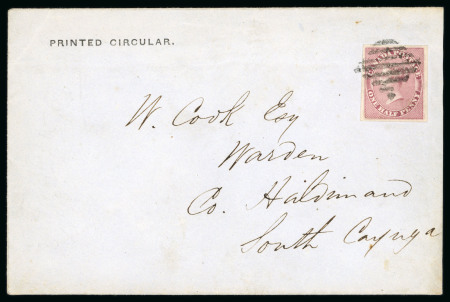 PRINTED CIRCULAR.
ONE HALF PENNY
W. Cook Esq
Warden
Co. Haldimand
South Cayuga